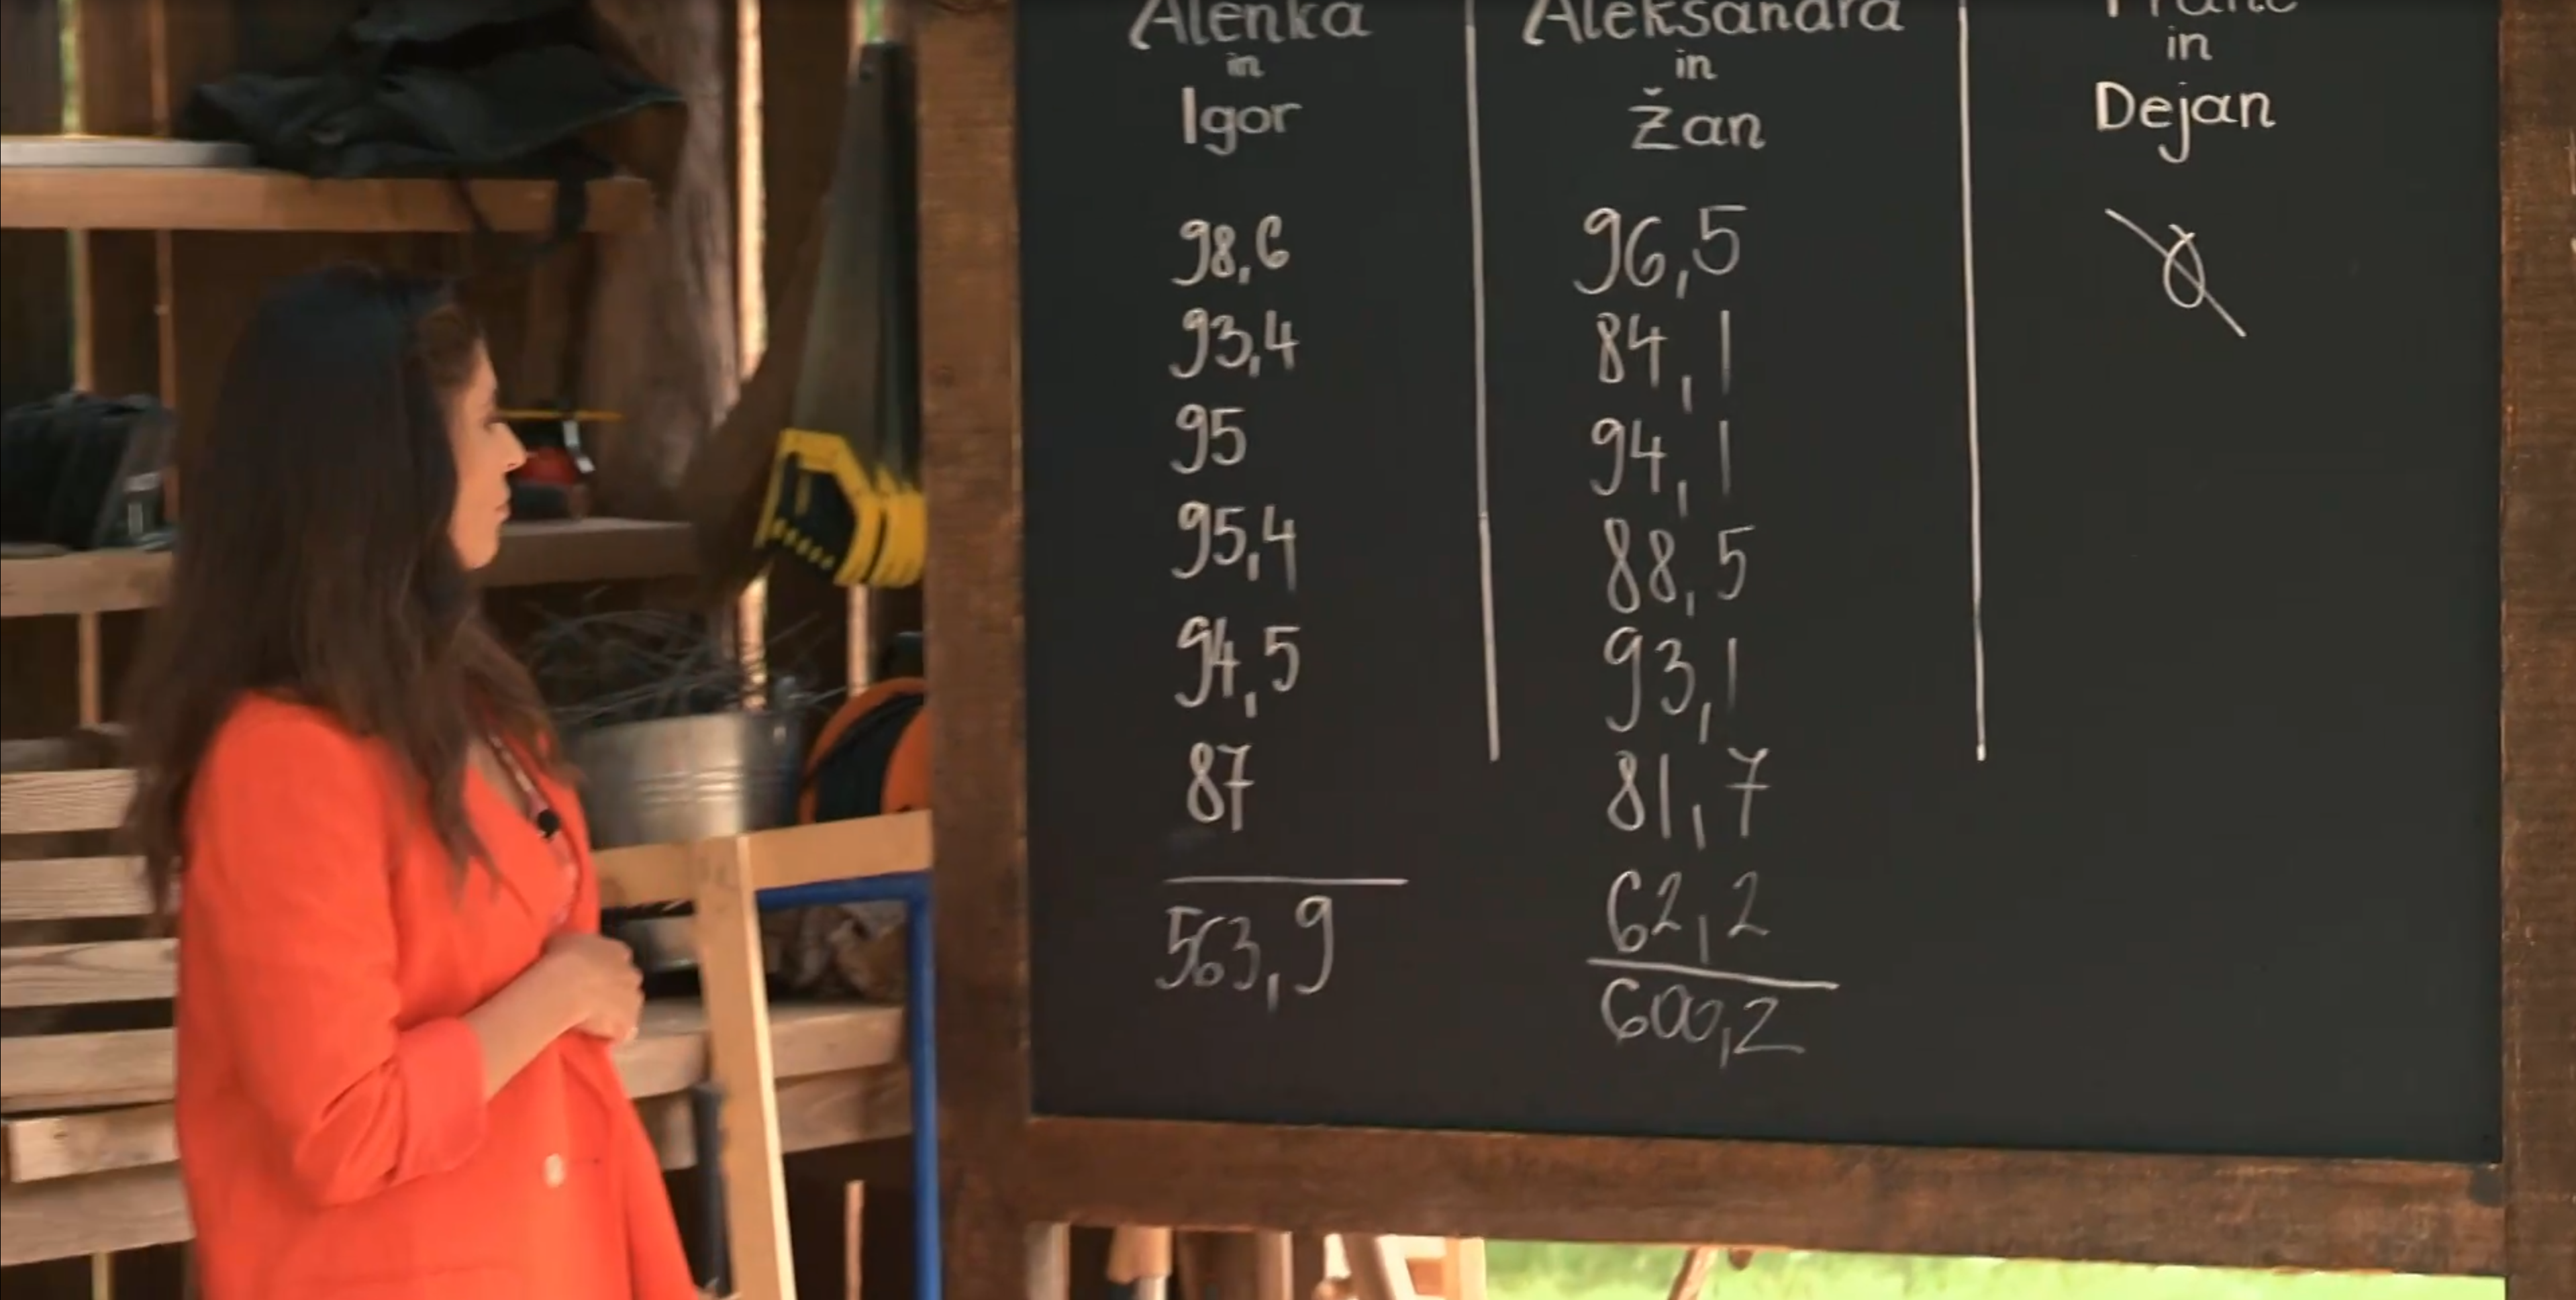 Alenka
in
Igor
98,6
93,4
95
95,4
94,5
87
563,9
Aleksandra
in
Žan
96,5
84,1
94,1
88,5
93,1
81,7
62,2
600,2
Franc
in
Dejan
0